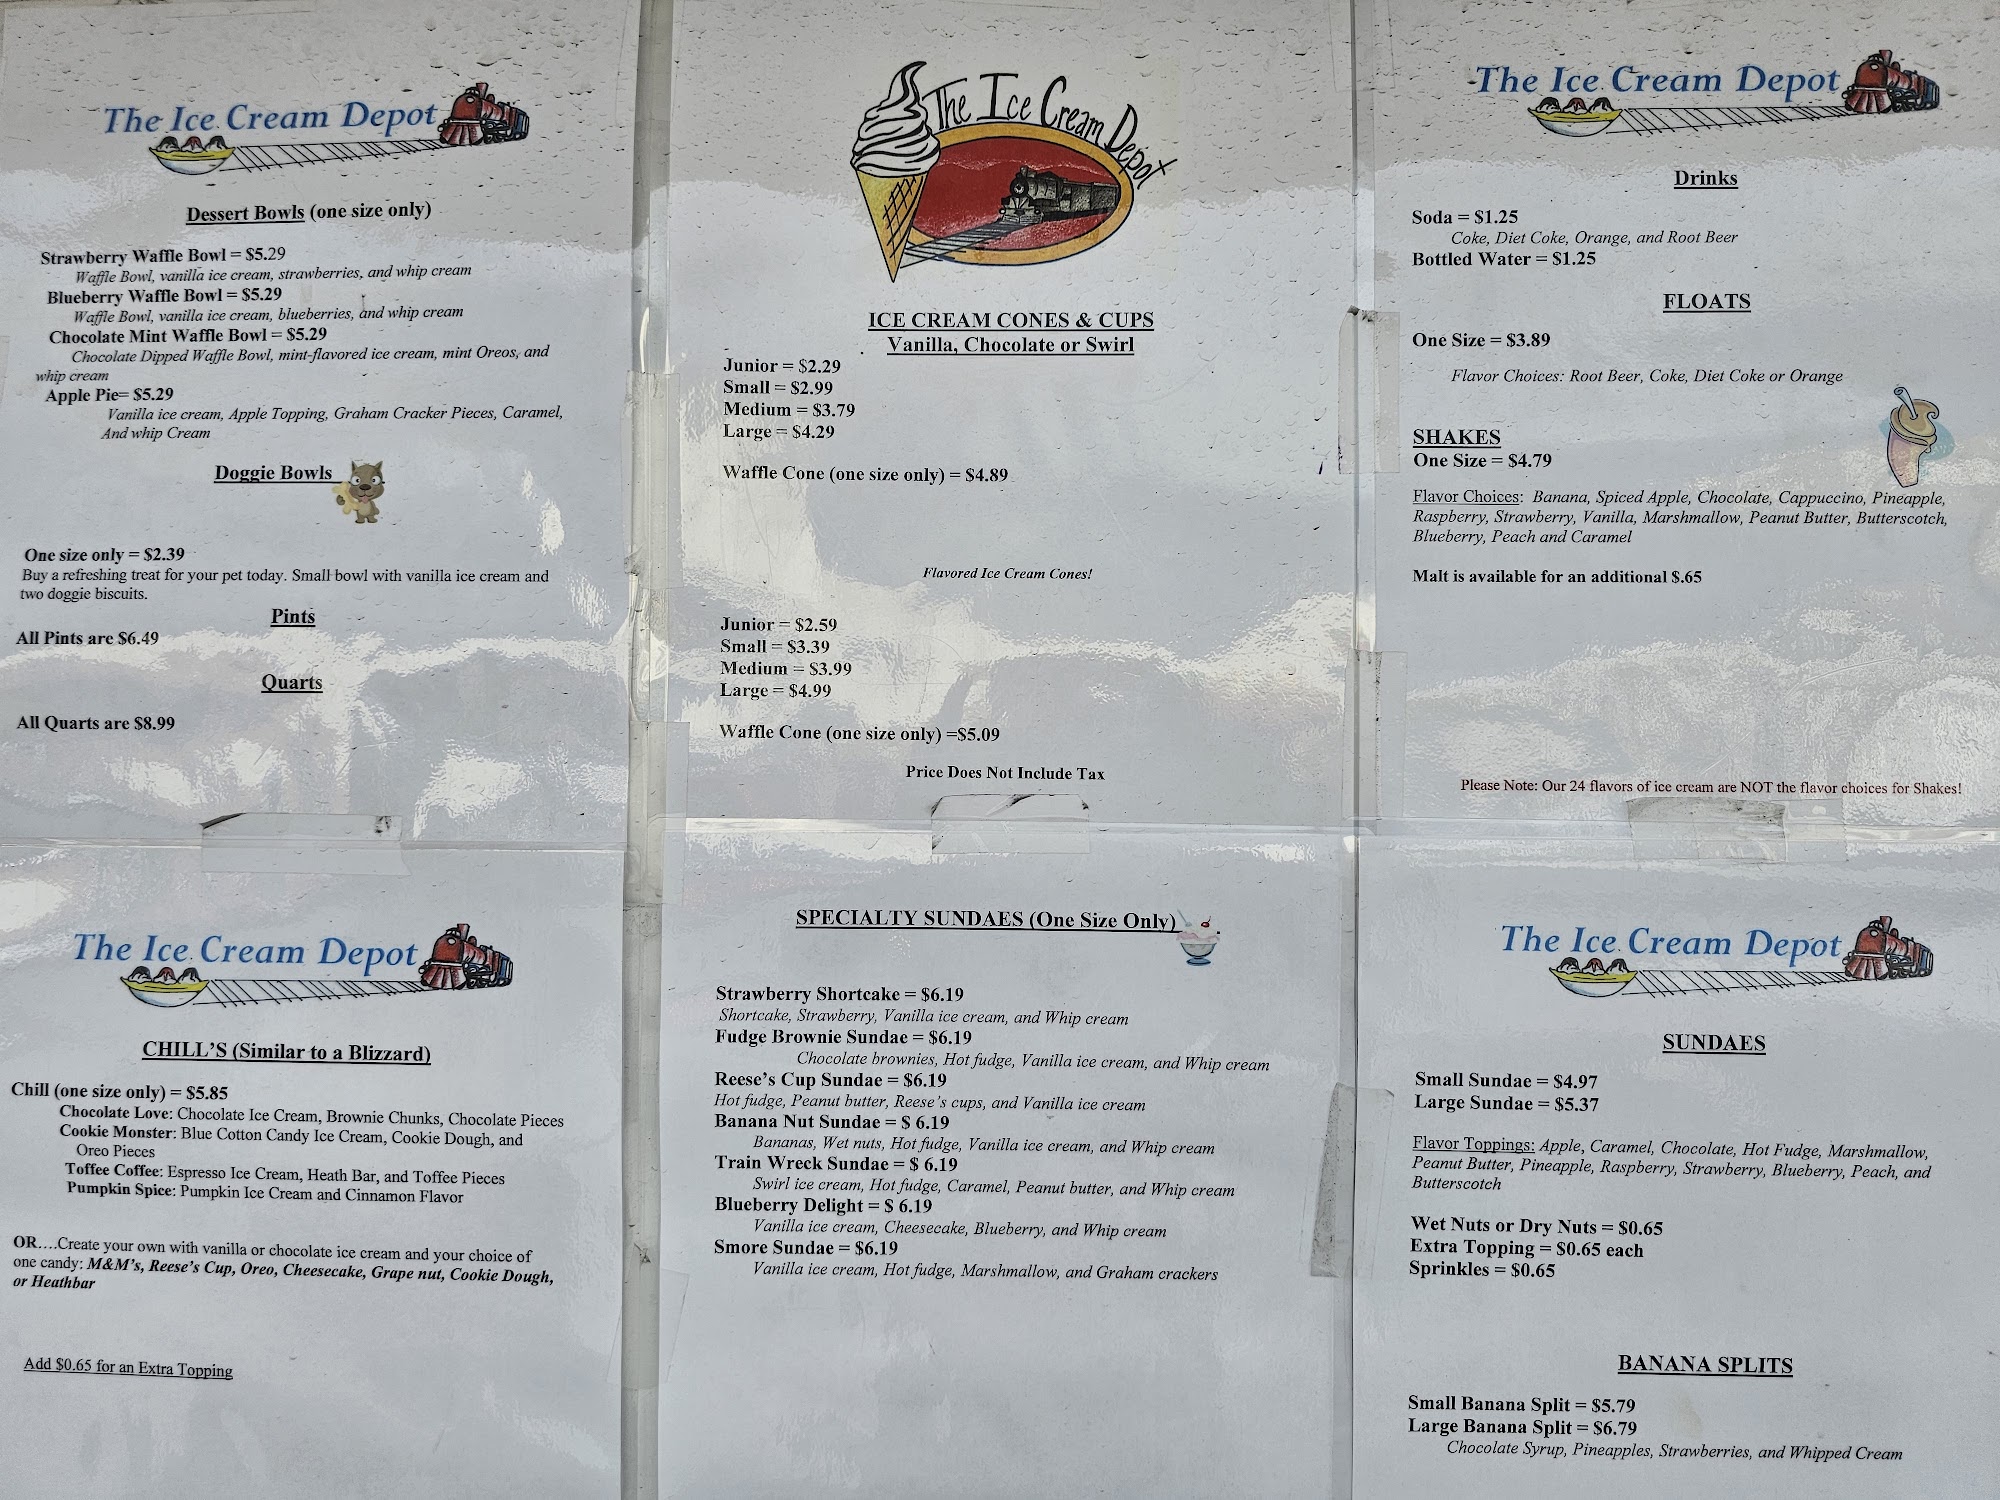 The Ice Cream Depot
Dessert Bowls (one size only)
Strawberry Waffle Bowl = $5.29
Waffle Bowl, vanilla ice cream, strawberries, and whip cream
Blueberry Waffle Bowl = $5.29
Waffle Bowl, vanilla ice cream, blueberries, and whip cream
Chocolate Mint Waffle Bowl = $5.29
Chocolate Dipped Waffle Bowl, mint-flavored ice cream, mint Oreos, and
whip cream
Apple Pie= $5.29
Vanilla ice cream, Apple Topping, Graham Cracker Pieces, Caramel,
And whip Cream
Doggie Bowls
One size only = $2.39
Buy a refreshing treat for your pet today. Small bowl with vanilla ice cream and
two doggie biscuits.
Pints
All Pints are $6.49
Quarts
All Quarts are $8.99
The Ice Cream Depot
ICE CREAM CONES & CUPS
Vanilla, Chocolate or Swirl
Junior = $2.29
Small = $2.99
Medium = $3.79
Large = $4.29
Waffle Cone (one size only) = $4.89
Flavored Ice Cream Cones!
Junior = $2.59
Small = $3.39
Medium = $3.99
Large = $4.99
Waffle Cone (one size only) =$5.09
Price Does Not Include Tax
The Ice Cream Depot
Drinks
Soda = $1.25
Coke, Diet Coke, Orange, and Root Beer
Bottled Water = $1.25
FLOATS
One Size = $3.89
Flavor Choices: Root Beer, Coke, Diet Coke or Orange
SHAKES
One Size = $4.79
Flavor Choices: Banana, Spiced Apple, Chocolate, Cappuccino, Pineapple,
Raspberry, Strawberry, Vanilla, Marshmallow, Peanut Butter, Butterscotch,
Blueberry, Peach and Caramel
Malt is available for an additional $.65
Please Note: Our 24 flavors of ice cream are NOT the flavor choices for Shakes!
The Ice Cream Depot
CHILL'S (Similar to a Blizzard)
Chill (one size only) = $5.85
Chocolate Love: Chocolate Ice Cream, Brownie Chunks, Chocolate Pieces
Cookie Monster: Blue Cotton Candy Ice Cream, Cookie Dough, and
Oreo Pieces
Toffee Coffee: Espresso Ice Cream, Heath Bar, and Toffee Pieces
Pumpkin Spice: Pumpkin Ice Cream and Cinnamon Flavor
OR….Create your own with vanilla or chocolate ice cream and your choice of
one candy: M&M's, Reese's Cup, Oreo, Cheesecake, Grape nut, Cookie Dough,
or Heathbar
Add $0.65 for an Extra Topping
SPECIALTY SUNDAES (One Size Only)
Strawberry Shortcake = $6.19
Shortcake, Strawberry, Vanilla ice cream, and Whip cream
Fudge Brownie Sundae = $6.19
Chocolate brownies, Hot fudge, Vanilla ice cream, and Whip cream
Reese's Cup Sundae = $6.19
Hot fudge, Peanut butter, Reese's cups, and Vanilla ice cream
Banana Nut Sundae = $ 6.19
Bananas, Wet nuts, Hot fudge, Vanilla ice cream, and Whip cream
Train Wreck Sundae = $ 6.19
Swirl ice cream, Hot fudge, Caramel, Peanut butter, and Whip cream
Blueberry Delight = $ 6.19
Vanilla ice cream, Cheesecake, Blueberry, and Whip cream
Smore Sundae = $6.19
Vanilla ice cream, Hot fudge, Marshmallow, and Graham crackers
The Ice Cream Depot
SUNDAES
Small Sundae = $4.97
Large Sundae = $5.37
Flavor Toppings: Apple, Caramel, Chocolate, Hot Fudge, Marshmallow,
Peanut Butter, Pineapple, Raspberry, Strawberry, Blueberry, Peach, and
Butterscotch
Wet Nuts or Dry Nuts = $0.65
Extra Topping = $0.65 each
Sprinkles = $0.65
BANANA SPLITS
Small Banana Split = $5.79
Large Banana Split = $6.79
Chocolate Syrup, Pineapples, Strawberries, and Whipped Cream